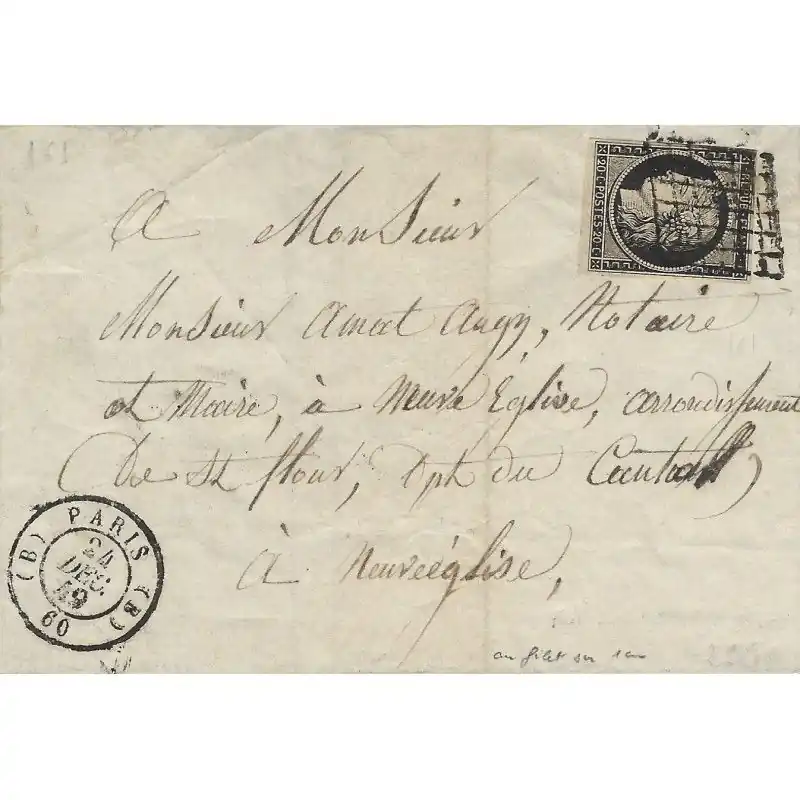 A Monsieur
Monsieur Amat Augy, Notaire
et Maire, à Neuve Eglise, arrondissement
De St flour, Dpt du Cantal
à Neuveéglise,
20·C·POSTES·20·C
(B) PARIS (B)
24
DEC.
49
60
au filet sur 1 cm